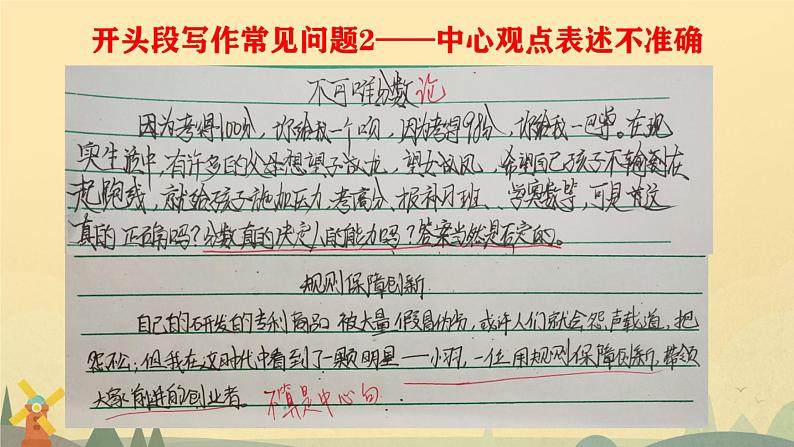 开头段写作常见问题2——中心观点表述不准确
不可唯分数论
因为考得100分，你给我一个吻，因为考得98分，你给我一巴掌。在现
实生活中，有许多的父母想望子成龙，望女成凤，希望自己孩子不输到在
起跑线，就给孩子施加压力，考高分、报补习班、学奥数等，可是有这
真的正确吗？分数真的决定人的能力吗？答案当然是否定的。
规则保障创新
自己的研发的专利商品被大量假冒伪劣，或许人们就会怨声载道，把
怨不公；但我在这时代中看到了一颗明星——小羽，一位用规则保障创新，带领
大家前进的创业者。不算是中心句